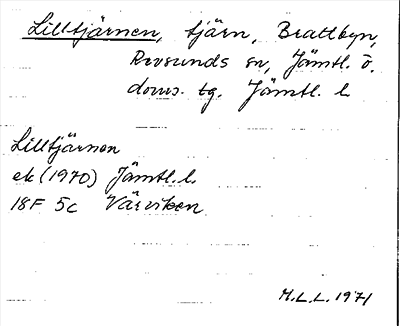 Lilltjärnen, tjärn, Brattbyn,
Revsunds sn, Jämtl. ö.
doms. tg. Jämtl. l.
Lilltjärnen
ek (1970) Jämtl. l.
18F 5c Värviken
M.L.L. 1971